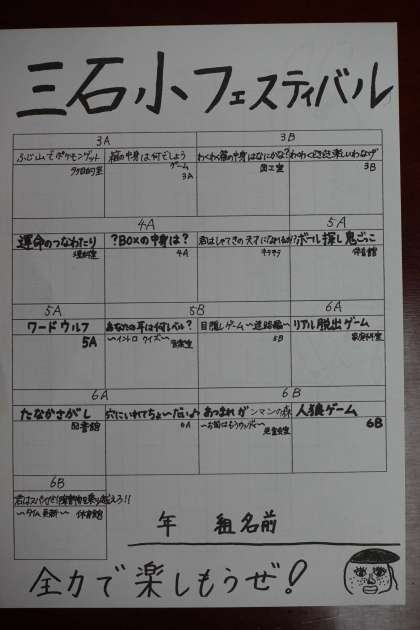 三石小フェスティバル
3A 3B
ふじ山でポケモンゲット 箱の中身は何でしょう わくわく箱の中身はなにかな? わくわくどきどき楽しいわなげ
多目的室 ゲーム 3A 図工室 3B
4A 5A
運命のつなわたり ?BOXの中身は? 君はしゃてきの天才になれるのか? ボール探し鬼ごっこ
理科室 4A 体育館
5A 5B 6A
ワードウルフ あなたの耳は何レベル? 目隠しゲーム〜迷路編〜 リアル脱出ゲーム
5A 〜イントロクイズ〜 音楽室 5B 家庭科室
6A 6B
たなかさがし 穴にいれてちょ〜だい♪ あつまれ ガンマンの森 人狼ゲーム
図書館 6A 〜お前はもうウッパ〜 児童会室 6B
6B
君はスパイだ!!障害物を乗り越えろ!!
〜タイム更新〜 体育館
年 組 名前
全力で楽しもうぜ!